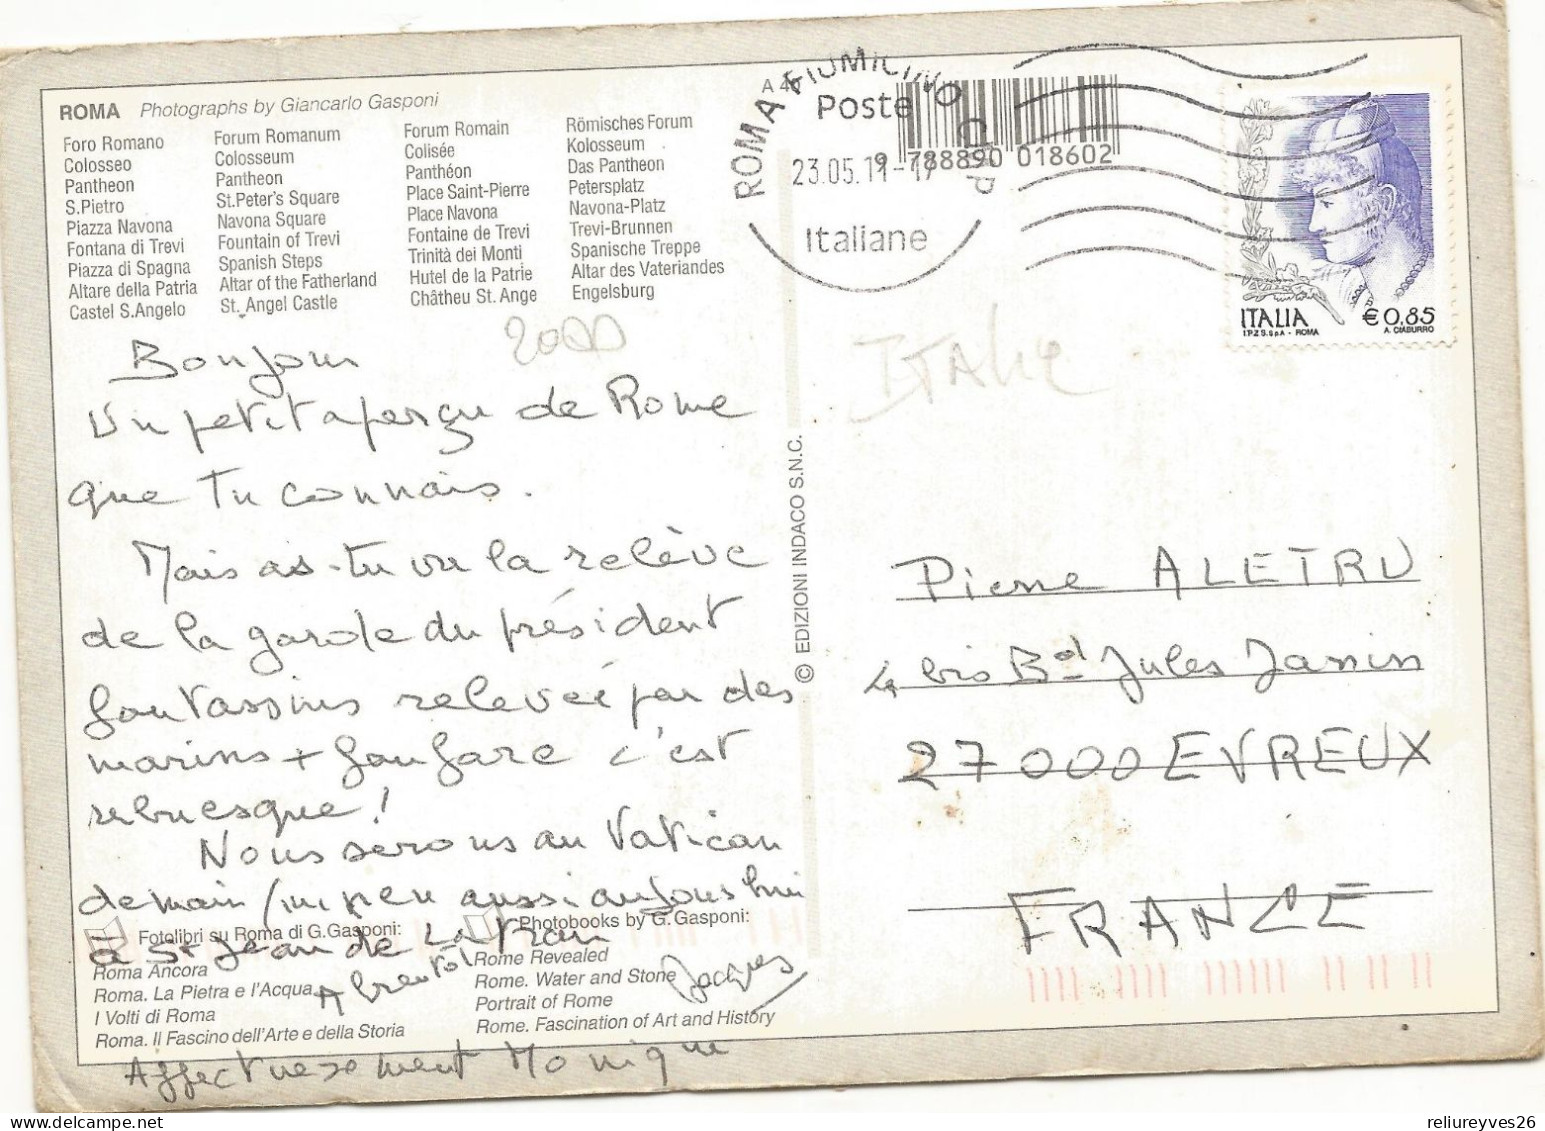 ROMA Photographs by Giancarlo Gasponi
Foro Romano
Colosseo
Pantheon
S.Pietro
Piazza Navona
Fontana di Trevi
Piazza di Spagna
Altare della Patria
Castel S.Angelo
Forum Romanum
Colosseum
Pantheon
St.Peter's Square
Navona Square
Fountain of Trevi
Spanish Steps
Altar of the Fatherland
St. Angel Castle
Forum Romain
Colisée
Panthéon
Place Saint-Pierre
Place Navona
Fontaine de Trevi
Trinità dei Monti
Hutel de la Patrie
Châtheu St. Ange
Römisches Forum
Kolosseum
Das Pantheon
Petersplatz
Navona-Platz
Trevi-Brunnen
Spanische Treppe
Altar des Vateriandes
Engelsburg
A 46
ROMA FIUMICINO C P
Poste
23.05.11-17
Italiane
9 788890 018602
ITALIA €0,85
I.P.Z.S. S.p.A. - ROMA A. CIABURRO
ITALIE
Bonjour
Un petit aperçu de Rome
que tu connais.
Mais as-tu vu la relève
de la garde du président
fantassins relevée par des
marins + fanfare c'est
! 
Nous serons au Vatican
demain / un peu aussi aujourd'hui
à St Jean de Latran
A bientôt
Jacques
Affectueusement Monique
Fotolibri su Roma di G.Gasponi:
Roma Ancora
Roma. La Pietra e l'Acqua
I Volti di Roma
Roma. Il Fascino dell'Arte e della Storia
Photobooks by G. Gasponi:
Rome Revealed
Rome. Water and Stone
Portrait of Rome
Rome. Fascination of Art and History
© EDIZIONI INDACO S.N.C.
Pierre ALETRU
4 bis Bd Jules Janin
27000 EVREUX
FRANCE
reliureyves26